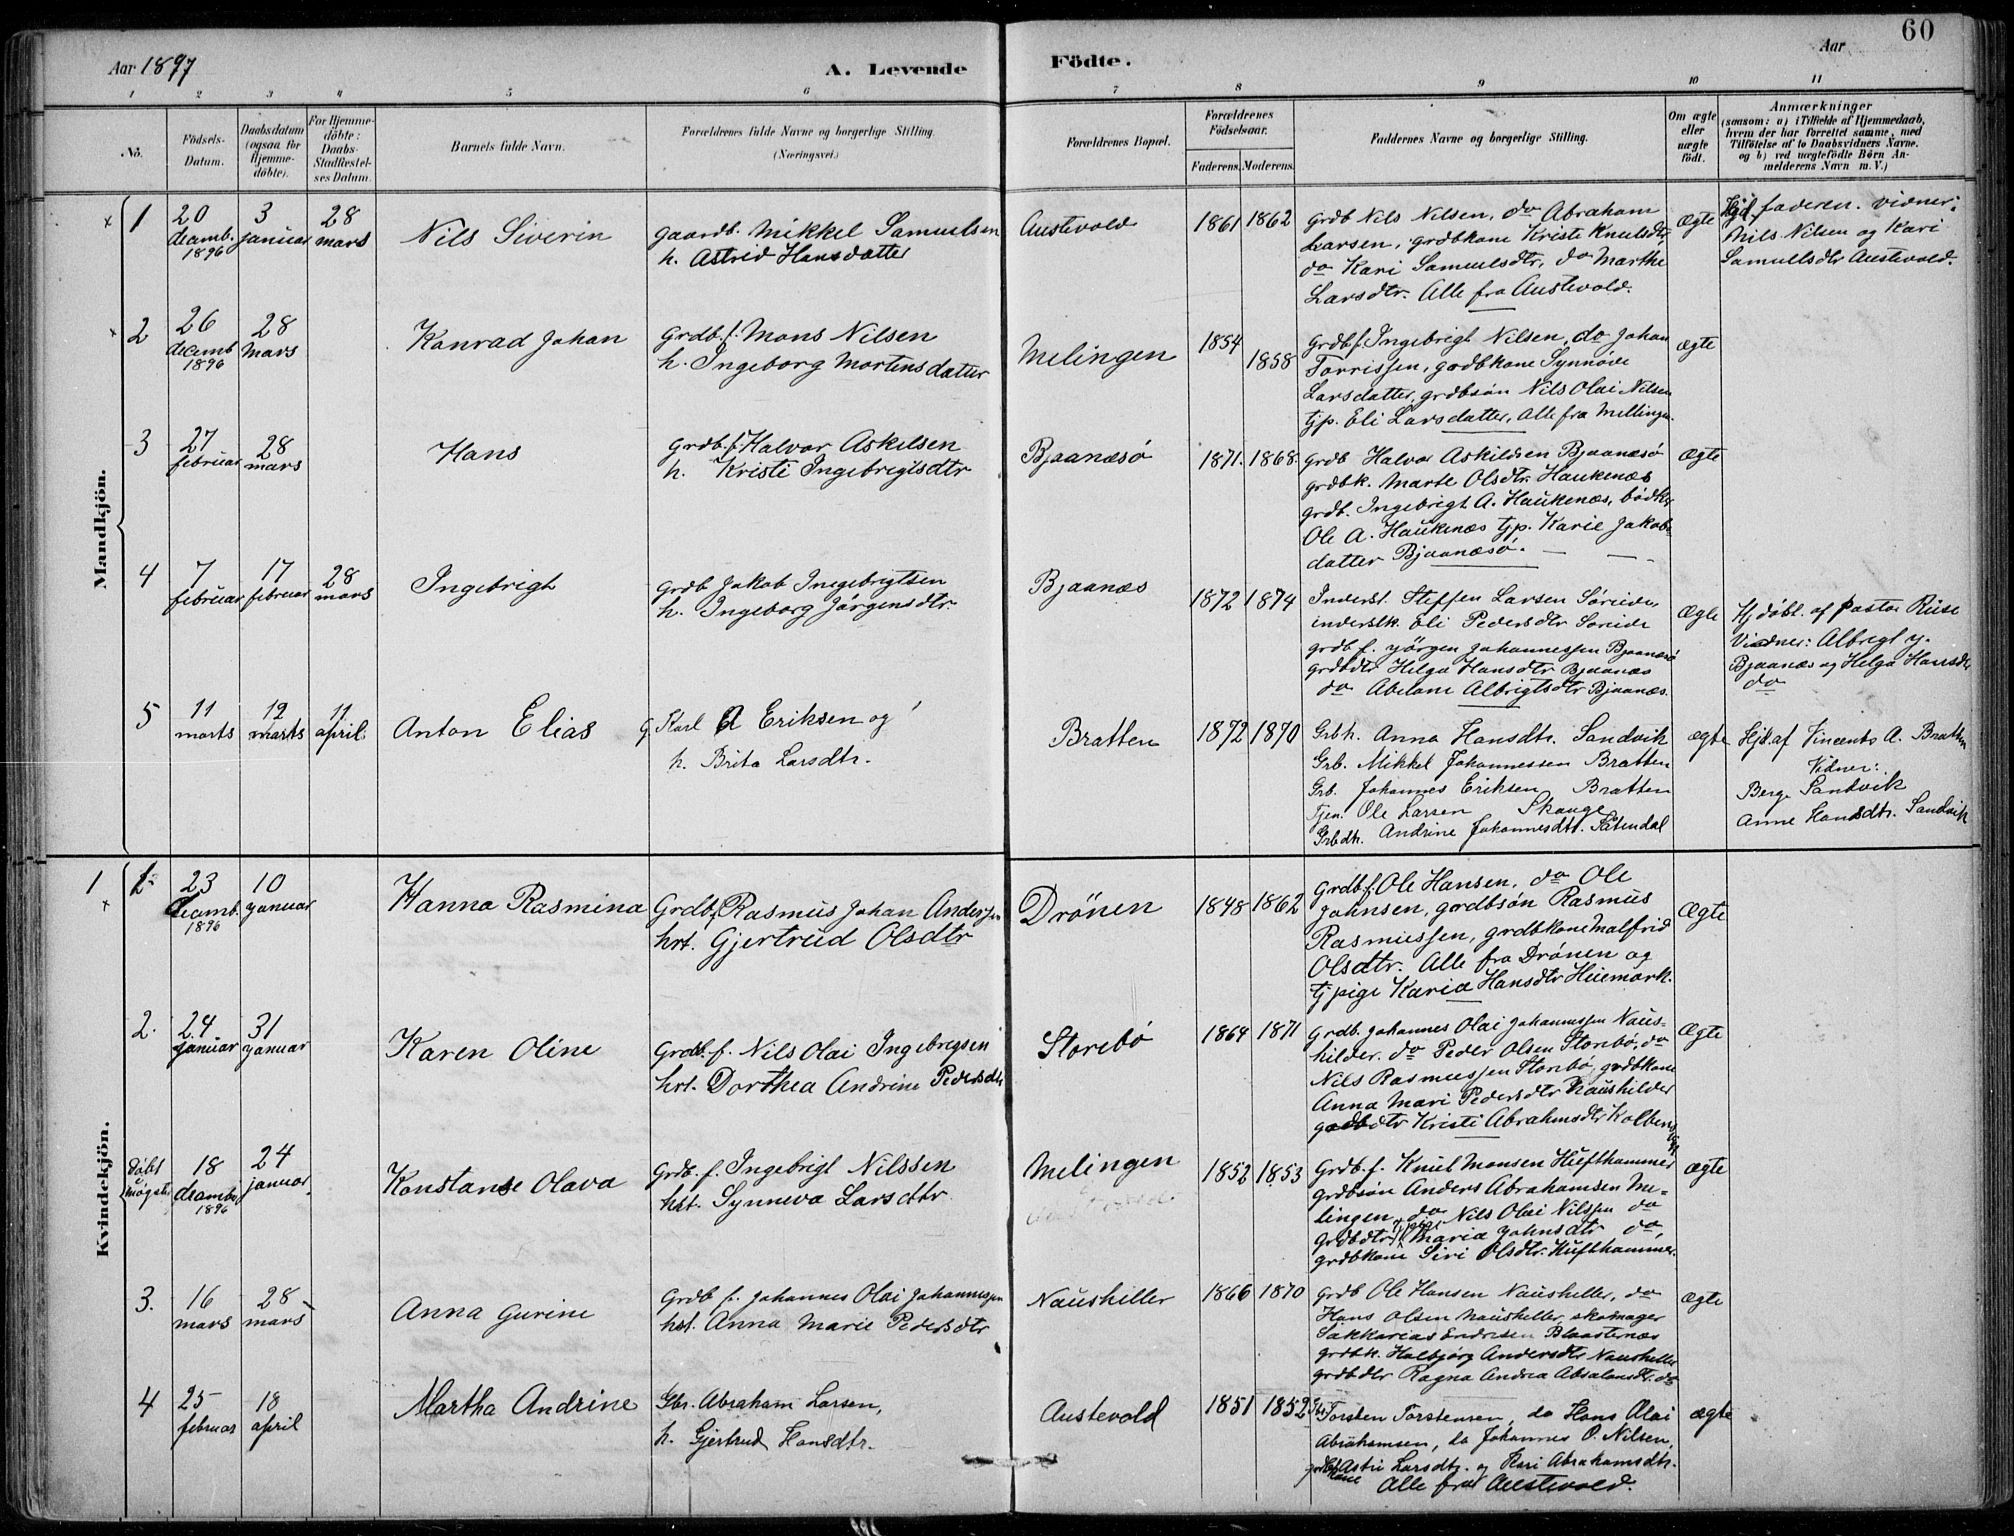 60
Aar 1897
A. Levende
Födte.
Aar
1
2
3
4
5
6
7
8
9
10
11
No.
Födsels-
Datum.
Daabsdatum
(ogsaa for
Hjemme-
döbte).
For Hjemme-
döbte:
Daabs-
Stadfæstel-
ses Datum.
Barnets fulde Navn.
Forældrenes fulde Navne og borgerlige Stilling.
(Næringsvei.)
Forældrenes Bopæl.
Forældrenes
Födselsaar.
Faderens.
Moderens.
Faddernes Navne og borgerlige Stilling.
Om ægte
eller
uægte
födt.
Anmærkninger
(saasom: a) i Tilfælde af Hjemmedaab,
hvem der har forrettet samme, med
Tilföielse af to Daabsvidners Navne.
og b) ved uægtefödte Börn An-
melderens Navn m. V.)
Mandkjön.
1
20
decemb.
1896
3
januar
28
mars
Nils Siverin
gaardb. Mikkel Samuelsen
h. Astrid Hansdatter
Austevold
1861
1862
grdb Nils Nilsen, do Abraham
Larsen, grdbkone Kristi Knutsdtr,
do Kari Samuelsdtr, do Marthe
Larsdtr. Alle fra Austevold.
Ægte
Hjd. faderen. vidner:
Nils Nilsen og Kari
Samuelsdtr Austevold.
2
26
decemb
1896
28
Mars
Konrad Johan
grdb. f. Mons Nilsen
h. Ingeborg Mortensdatter
Melingen
1854
1858
grdb f. Ingebrigt Nilsen, do Johan
Torrissen, grdbkone Synnöve
Larsdatter, grdbsön Nils Olai Nilsen
tjp. Eli Larsdatter, Alle fra Mellingen.
ægte
3
27
februar
28
mars
Hans
grdb. f. Halvor Askelsen
h. Kristi Ingebrigtsdtr
Bjaanæsö
1871.
1868.
grdb Halvor Askildsen Bjaanæsö
grdbk. Marte Olsdtr. Haukenæs
grdb. Ingebrigt A. Haukenæs, bödker
Ole A. Haukenæs tjp. Karie Jakobs-
datter Bjaanæsö.
Ægte
4
7
februar
17
februar
28
mars
Ingebrigt
grdb Jakob Ingebrigtsen
h. Ingeborg Jörgensdtr
Bjaanæs
1872
1874
Inderst. Steffen Larsen Söreide,
inderstk. Eli Pedersdtr Söreide
grdb f. Jörgen Johannessen Bjaanæsö
grdbdtr Helga Hansdtr Bjaanæs
do Abelone Albrigtsdtr Bjaanæs.
Ægte
Hjdöbt. af pastor Riise
Vidner: Albrigt J.
Bjaanæs og Helga Hansdtr
do
5
11
marts
12
marts
11
april.
Anton Elias
G. Karl A Eriksen og
h. Brita Larsdtr.
Bratten
1872
1870
Grbh. Anna Hansdtr. Sandvik
Grb. Mikkel Johannessen Bratten
Grb. Johannes Eriksen Bratten
Tjen. Ole Larsen Skauge
Grbdtr. Andrine Johannesdtr. Sætendal
ægte
Hjd. af Vincents A. Bratten
Vidner:
Berge Sandvik
Anne Hansdtr. Sandvik
Kvindekjön.
1
23
decemb.
1896
10
januar
Hanna Rasmina
Grdbf Rasmus Johan Andersen
hst. Gjertrud Olsdtr
Drönen
1848
1862
Grdbf. Ole Hansen, do Ole
Johnsen, grdbsön Rasmus
Rasmussen, grdbkone Malfrid
Olsdtr. Alle fra Drönen og
tjpige Karia Hansdtr Heiemark.
Ægte
2.
24
januar
31
januar
Karen Oline
Grdb. f. Nils Olai Ingebrigsen
hst. Dorthea Andrine Pedersdtr
Storebö
1864
1871
Grdb. Johannes Olai Johannessen Naus-
hilder. do Peder Olsen Storebö, do
Nils Rasmussen Storebö, grdbkone
Anna Mari Pedersdtr Naushilder
grdbdtr Kristi Abrahmsdtr Kolbens
Ægte
döbt
Møgster
18
decemb.
1896
24
januar
Konstanse Olava
Grdb. f. Ingebrigt Nilssen
hst. Synneva Larsdtr
Melingen
1852
1853
Grdb. f. Knut Monsen Hufthammer
grdbsön Anders Abrahamsen Me-
lingen, do Nils Olai Nilssen do
Grdbdtr Maria Johnsdtr do,
grdbkone Siri Olsdtr. Hufthammer.
ægte
3.
16
mars
28
mars
Anna Gurine
Grdb f. Johannes Olai Johannessen
hst. Anna Marie Pedersdtr
Naushiller
1866
1870
Grdb Ole Hansen Naushiller, do
Hans Olsen Naushiller, skomager
Sakkarias Endresen Blaasternæs
grdbk. Halbjörg Andersdtr Naushiller
grdbdtr Ragna Andrea Absalonsdtr. do
Ægte
4
25
februar
18
april
Martha Andrine
Gbr. Abraham Larsen,
h. Gjertrud Hansdtr.
Austevold
1851
1852
Torsten Torstensen, do Hans Olai
Abrahamsen, do Johannes O. Nilsen,
grdbkone Astri Larsdtr. og Kari Abrahamsdtr.
Alle fra Austevold.
ægte